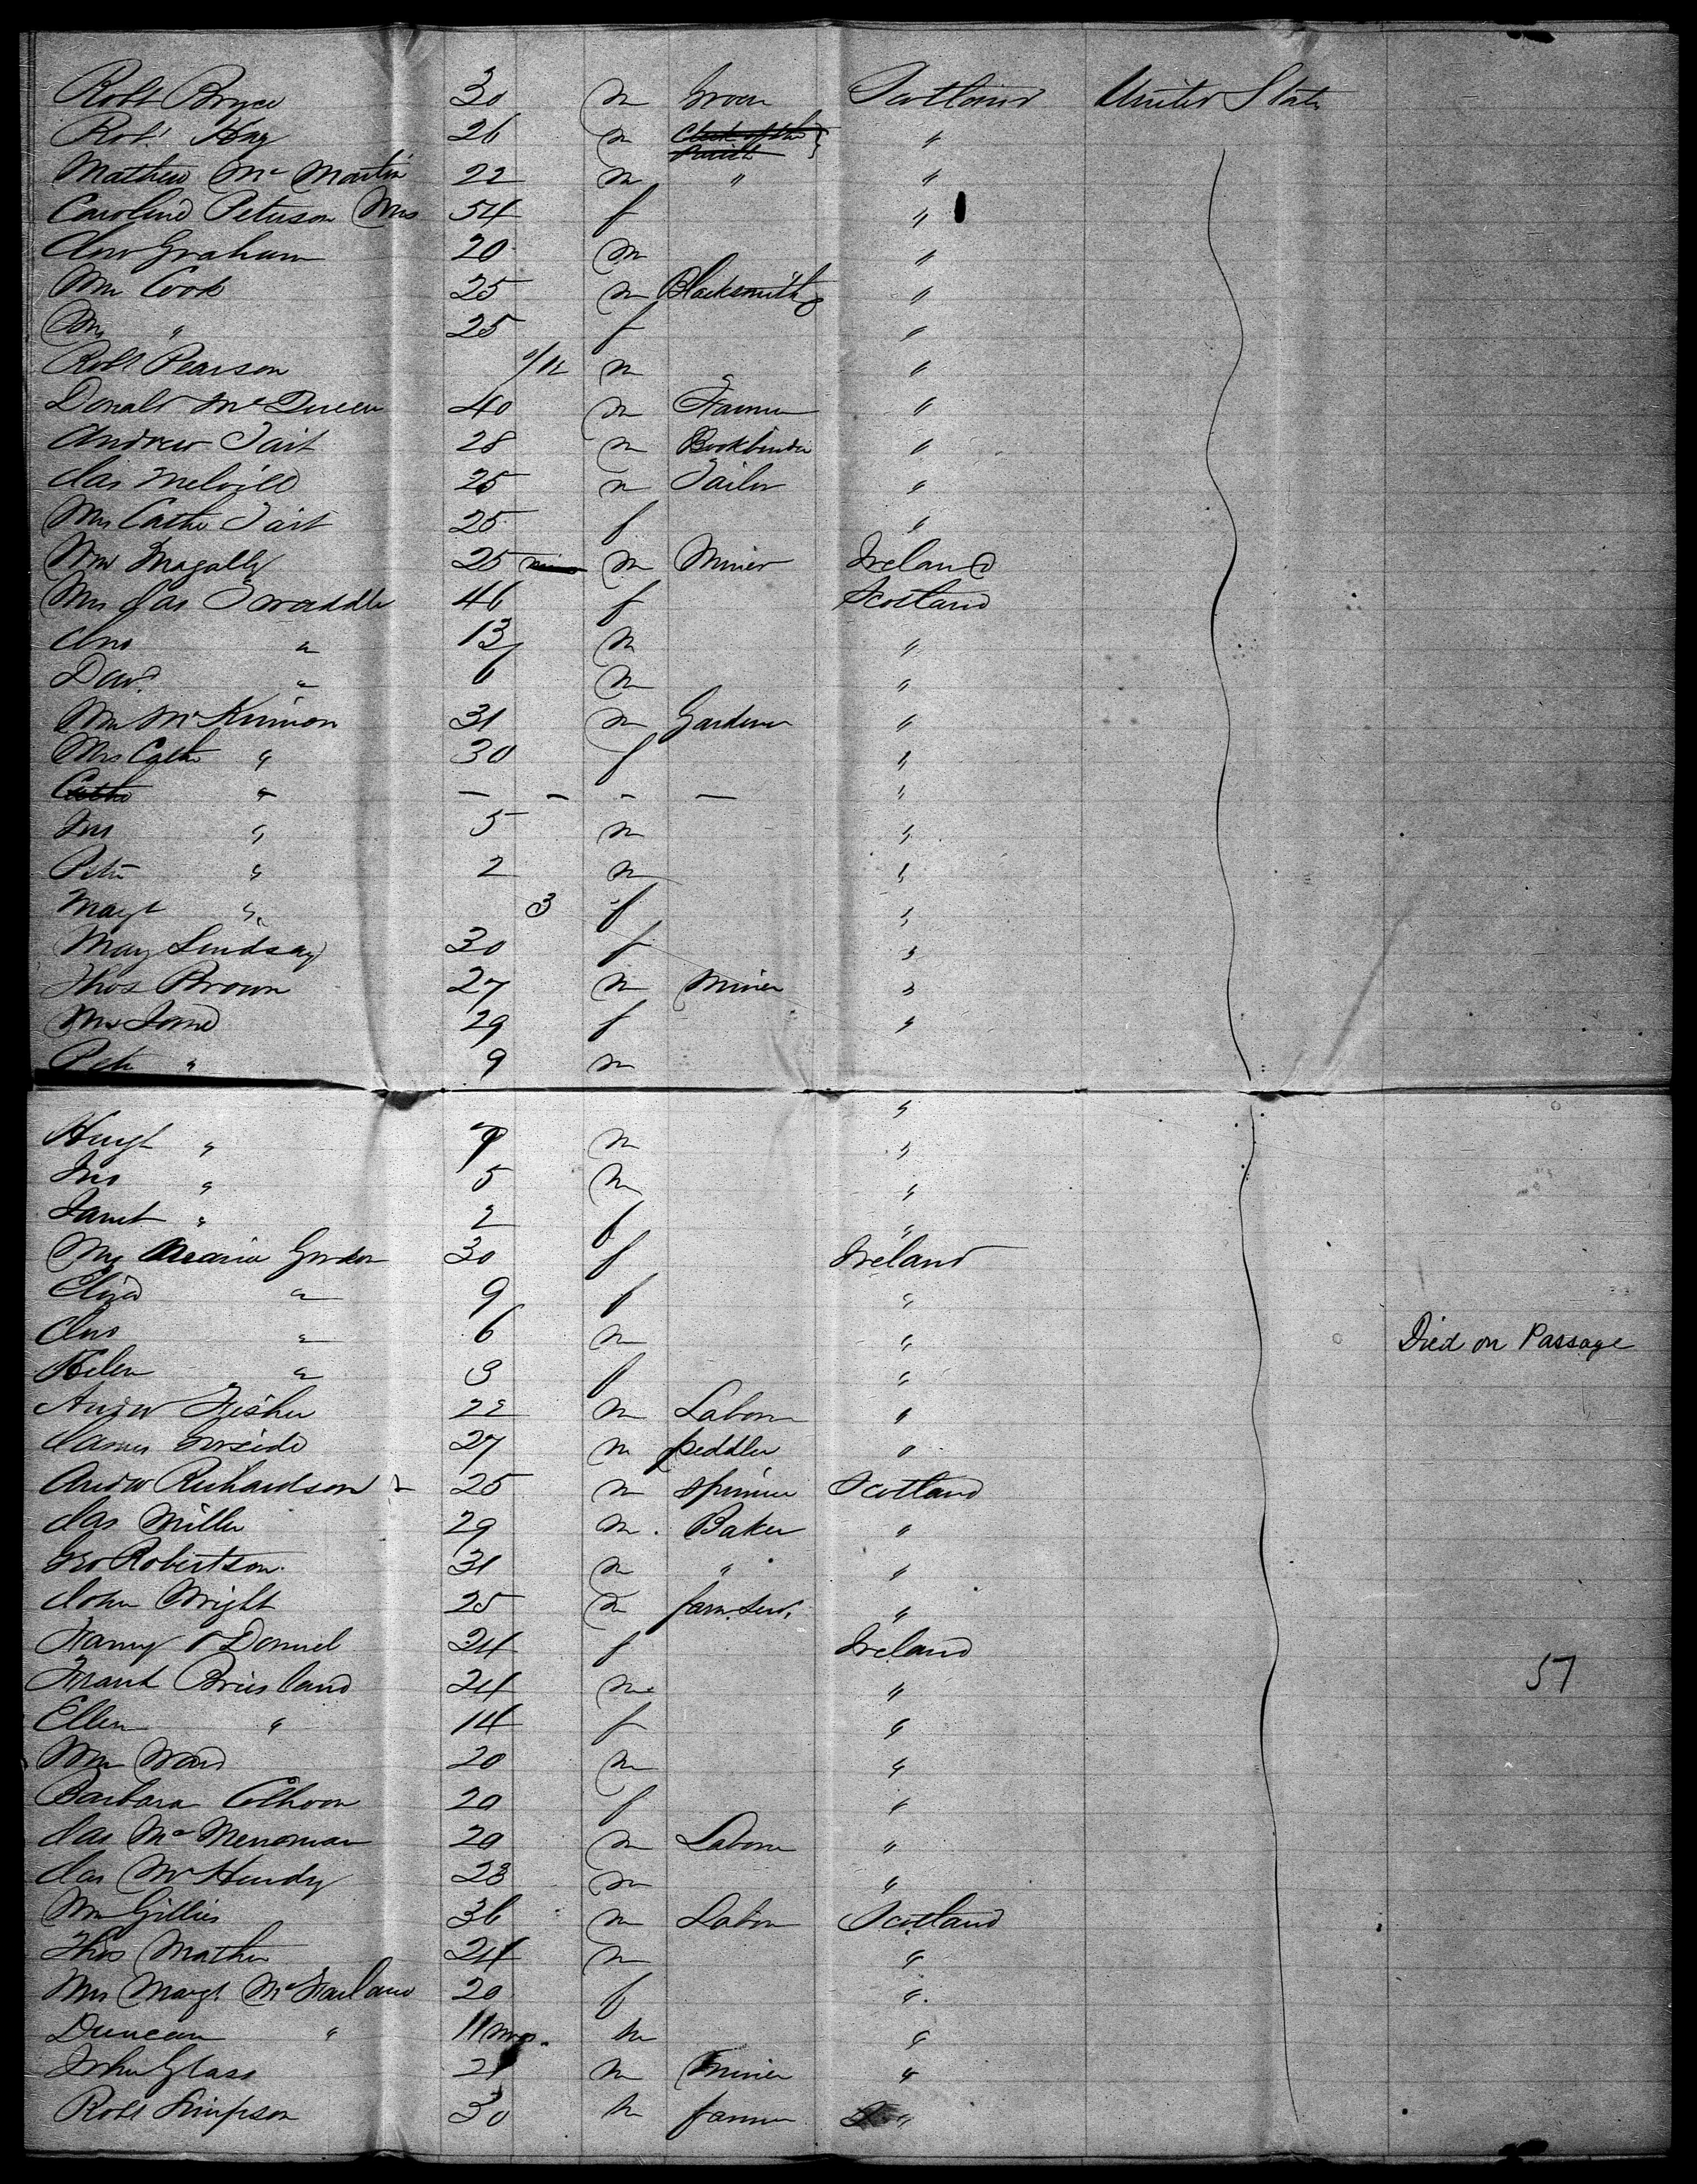 Robt Bryce 30 m Grocer Scotland United State
Robt Hay 26 m Clerk of the Smith "
Mathew Mc Martin 22 m " "
Caroline Peterson Mrs 54 f "
Jno Graham 20 m "
Wm Cook 25 m Blacksmith "
Mrs " 25 f "
Robt Pearson /12 m "
Donald McQueen 40 m Farmer "
Andrew Tait 28 m Bookbinder "
Jas Melvill 25 m Tailor "
Mrs Cathe Tait 25 f "
Wm Magally 25 m Miner Ireland
Mrs Jas Twaddle 46 f Scotland
Jno " 13 m "
Davd " 6 m "
Wm McKinnon 31 m Gardener "
Mrs Cathe " 30 f "
Cathe " — — — — "
Jno " 5 m "
Peter " 2 m "
Margt " 3 f "
Mary Lindsay 30 f "
Thos Brown 27 m Miner "
Mrs Jane 29 f "
Peter " 9 m "
Hugh " 7 m "
Jno " 5 m "
Janet " 2 f "
Mrs Maria Gordon 30 f Ireland
Eliza " 9 f "
Jno " 6 m " Died on Passage
Helen " 3 f "
Andw Fisher 22 m Laborer "
James 27 m peddler "
Andw Richardson 25 m spinner Scotland
Jas Miller 29 m Baker "
Geo Robertson 31 m " "
John Wright 25 m farm. serv. "
Fanny O Donnel 24 f Ireland
Frank Briesland 24 m "
57
Ellen " 14 f "
Wm Ward 20 m "
Barbara Colhoon 20 f "
Jas McMenoman 20 m Laborer "
Jas McHendry 23 m "
Wm Gillies 36 m Labor Scotland
Thos Mather 24 m "
Mrs Margt McFarland 20 f "
Duncan " 11 mos. m "
John Glass 21 m Miner "
Robt Simpson 30 m farmer "